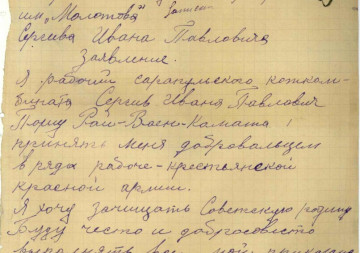 им „Молотова" записки
Сергива Ивана Павловича
Заявление.
Я рабочий сарапульского кожком-
бината Сергив Иван Павлович
Прошу Рай-Воен-Комата
принять меня добровальцем
в ряды рабоче-крестьянской
красной армии.
Я хочу защищать Советскую родину
Буду честно и добросовисто
выполнять все